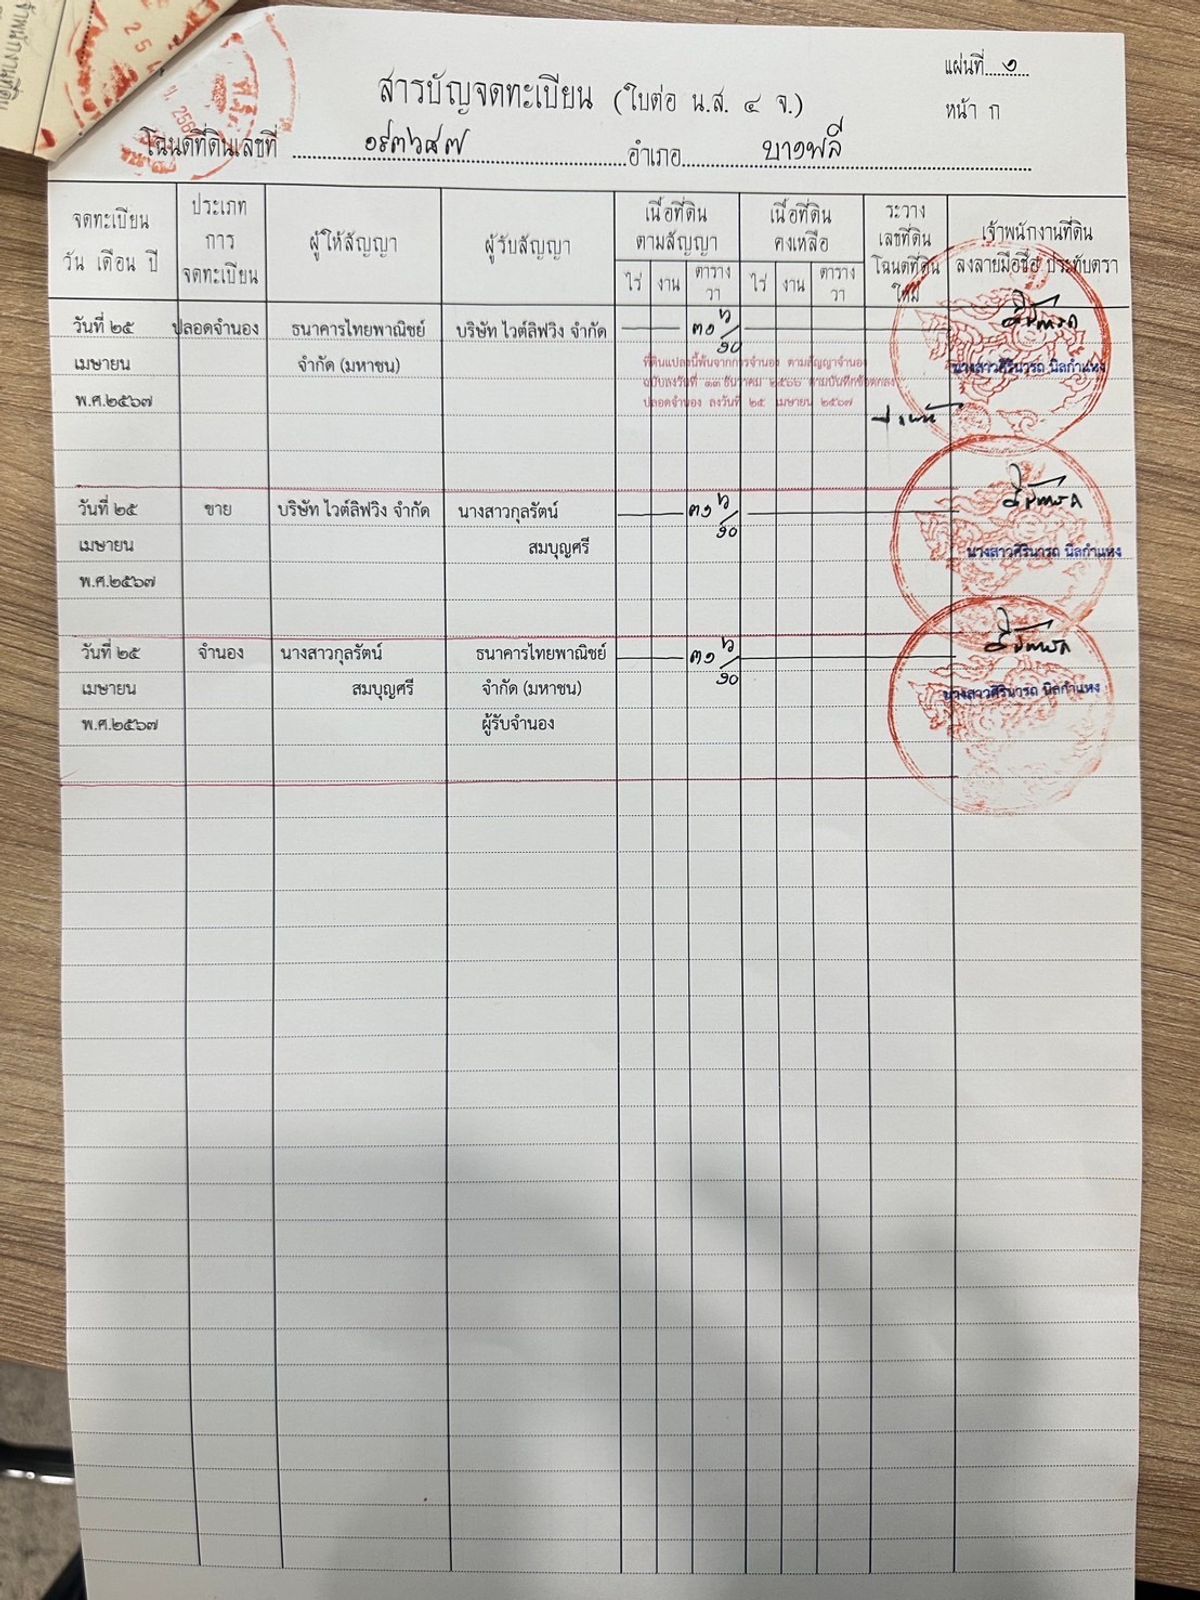 แผ่นที่ ๑
สารบัญจดทะเบียน (ใบต่อ น.ส. ๔ จ.)
หน้า ก
โฉนดที่ดินเลขที่ ๑๙๓๖๔๗ อำเภอ บางพลี
จดทะเบียน วัน เดือน ปี
ประเภท การ จดทะเบียน
ผู้ให้สัญญา
ผู้รับสัญญา
เนื้อที่ดิน ตามสัญญา
เนื้อที่ดิน คงเหลือ
ระวาง เลขที่ดิน โฉนดที่ดิน ใหม่
เจ้าพนักงานที่ดิน ลงลายมือชื่อ ประทับตรา
ไร่ งาน ตาราง วา ไร่ งาน ตาราง วา
วันที่ ๒๕ ปลอดจำนอง ธนาคารไทยพาณิชย์ บริษัท ไวต์ลิฟวิง จำกัด ๓๑ ๖/๑๐
เมษายน จำกัด (มหาชน)
พ.ศ.๒๕๖๗
ที่ดินแปลงนี้พ้นจากการจำนอง ตามสัญญาจำนอง
ฉบับลงวันที่ ๑๓ ธันวาคม ๒๕๖๖ ตามบันทึกข้อตกลง
ปลอดจำนอง ลงวันที่ ๒๕ เมษายน ๒๕๖๗
นางสาวศิรินารถ นิลกำแหง
วันที่ ๒๕ ขาย บริษัท ไวต์ลิฟวิง จำกัด นางสาวกุลรัตน์ ๓๑ ๖/๑๐
เมษายน สมบุญศรี
พ.ศ.๒๕๖๗
นางสาวศิรินารถ นิลกำแหง
วันที่ ๒๕ จำนอง นางสาวกุลรัตน์ ธนาคารไทยพาณิชย์ ๓๑ ๖/๑๐
เมษายน สมบุญศรี จำกัด (มหาชน)
พ.ศ.๒๕๖๗ ผู้รับจำนอง
นางสาวศิรินารถ นิลกำแหง